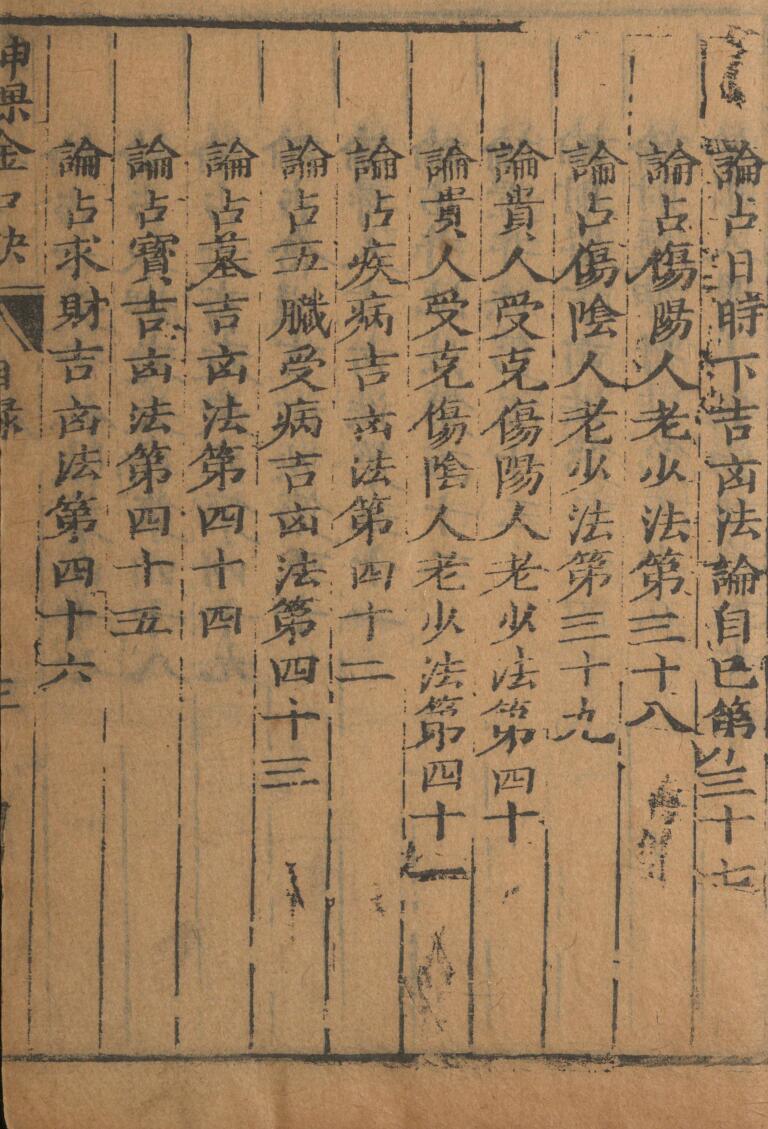 論占日時下吉㐫法論自已第三十七
論占傷陽人老少法第三十八
論占傷陰人老少法第三十九
論貴人受克傷陽人老少法第四十
論貴人受克傷陰人老少法第四十一
論占疾病吉㐫法第四十二
論占五臟受病吉㐫法第四十三
論占墓吉㐫法第四十四
論占寳吉㐫法第四十五
論占求財吉㐫法第四十六
神課金口訣
目録
三